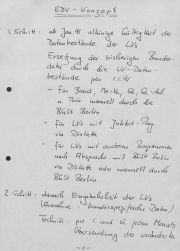 EDV - Konzept
1. Schritt: ab Jan. 91 alleinige Gültigkeit der
Datenbestände der LVs
Ersetzung der bisherigen Bundes-
datei durch die LV-Daten-
bestände per 1.1.91
- für Brand., Me-Vo, Sa, Sa-Anh
u. Thür. manuell durch die
BGSt Berlin
- für LVs mit Prog
via Diskette
- für LVs mit anderen Programmen
nach Absprache mit BGSt
via Diskette oder manuell durch
BGSt Berlin
2. Schritt: danach Eingabehoheit der LVs
(Ausnahme: Daten)
Technik: pro 1. und 15. jeden Monats
Übersendung der veränderten